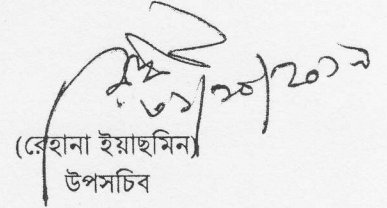 ৩১/১০/২০১৯
(রেহানা ইয়াছমিন)
উপসচিব